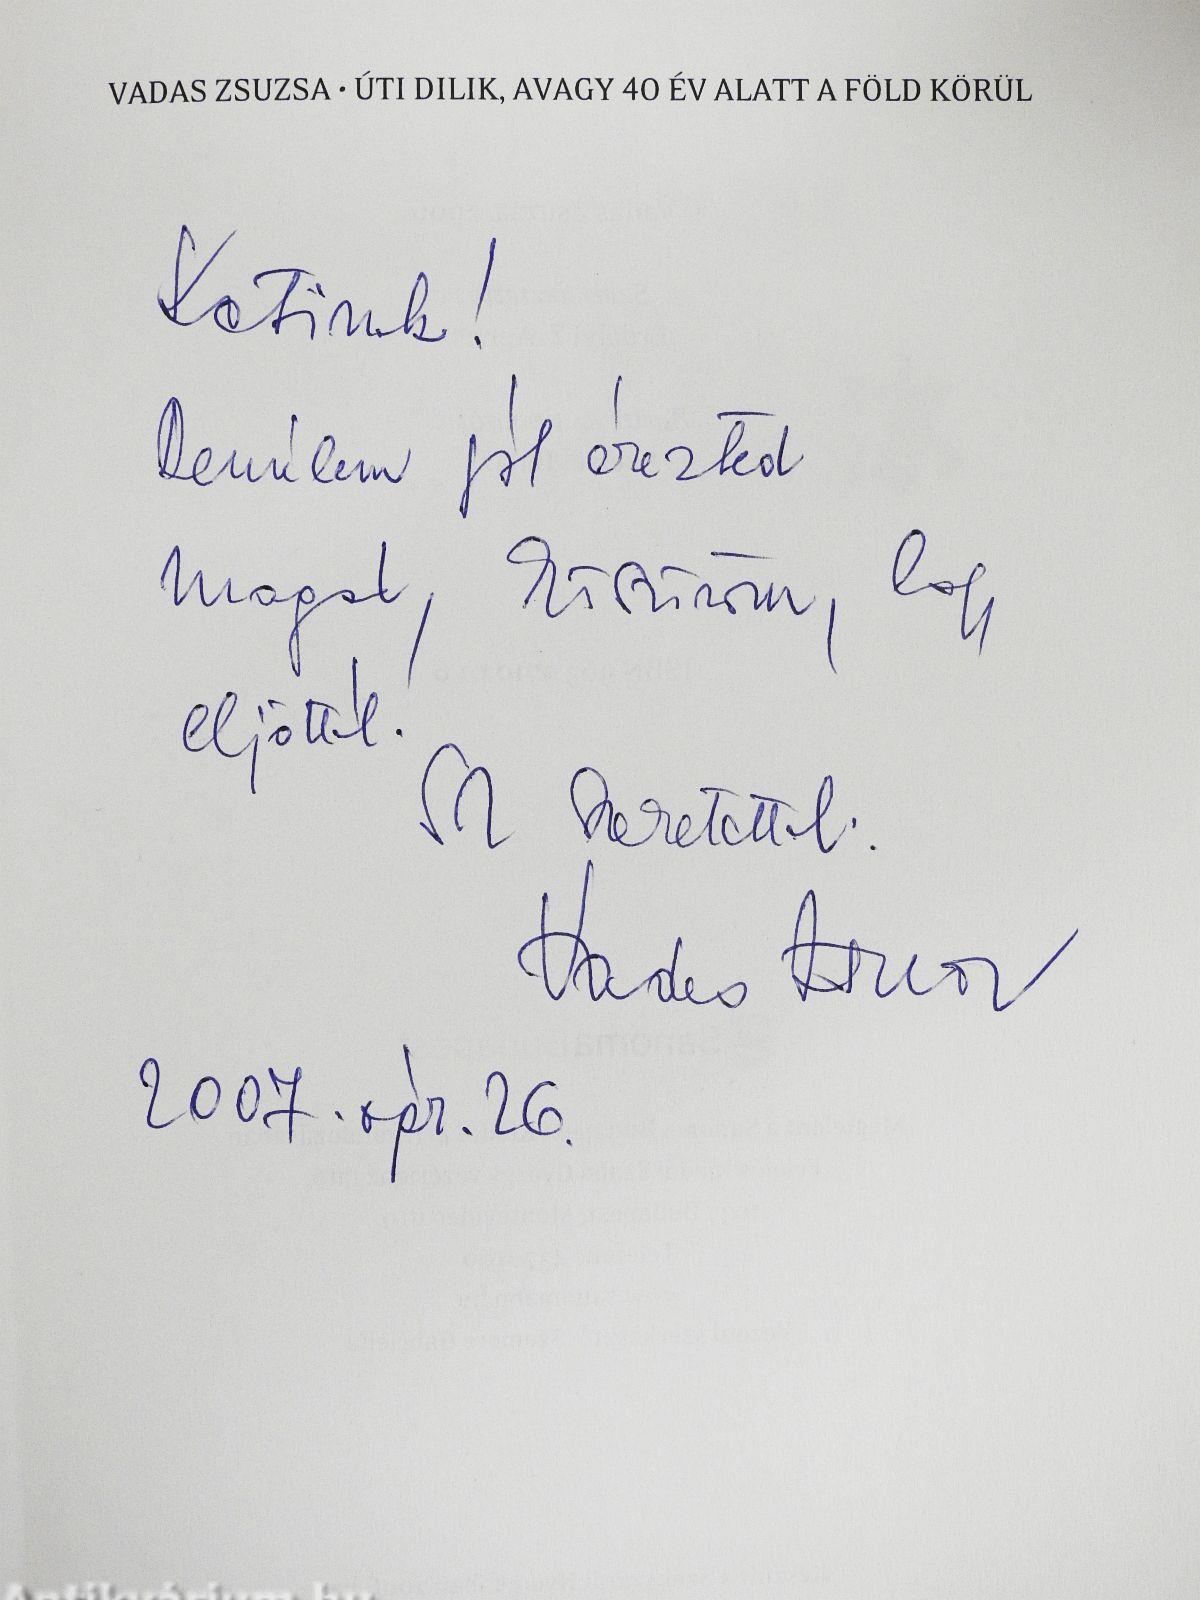 VADAS ZSUZSA • ÚTI DILIK, AVAGY 40 ÉV ALATT A FÖLD KÖRÜL
Katinak!
Remélem jól érezted
magad, köszönöm, hogy
eljöttél.
szeretettel:
Vadas Zsuzsa
2007. ápr. 26.
Antikvárium.hu